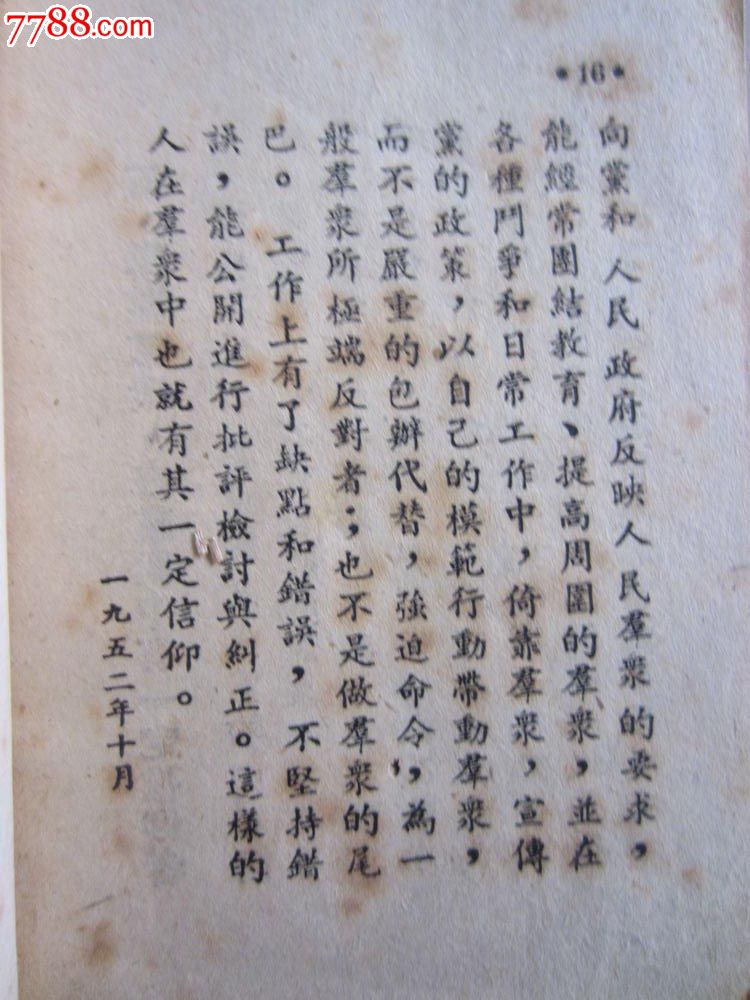 7788.com
•16•
向黨和人民政府反映人民羣衆的要求，
能經常團結教育、提高周圍的羣衆，並在
各種鬥爭和日常工作中，倚靠羣衆，宣傳
黨的政策，以自己的模範行動帶動羣衆，
而不是嚴重的包辦代替，強迫命令，為一
般羣衆所極端反對者；也不是做羣衆的尾
巴。工作上有了缺點和錯誤，不堅持錯
誤，能公開進行批評檢討與糾正。這樣的
人在羣衆中也就有其一定信仰。
一九五二年十月